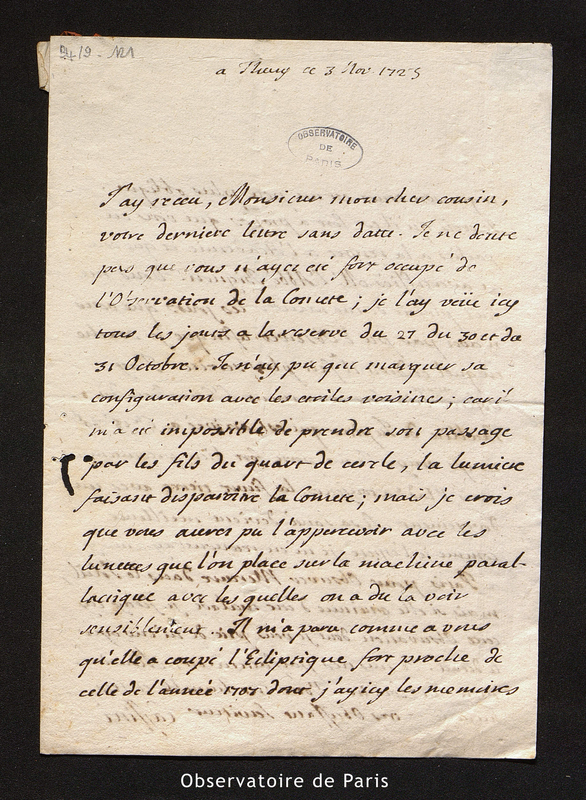 a Thury ce 3 Nov. 1725
OBSERVATOIRE
DE
PARIS
J'ay receu, Monsieur mon cher cousin,
votre derniere lettre sans datte. Je ne doute
pas que vous n'ayez été fort occupé de
l'Observation de la Comete; je l'ay veüe icy
tous les jours a la reserve du 27 du 30 et du
31 Octobre. Je n'ay pu que marquer sa
configuration avec les etoiles voisines; car il
m'a été impossible de prendre son passage
par les fils du quart de cercle, la lumiere
faisant disparoitre la Comete; mais je crois
que vous aurez pu l'appercevoir avec les
lunettes que l'on place sur la machine paral-
lactique avec les quelles on a du la voir
sensiblement. Il m'a paru comme a vous
qu'elle a coupé l'Ecliptique fort proche de
celle de l'année 1707 dont j'ay icy les memoires
Observatoire de Paris